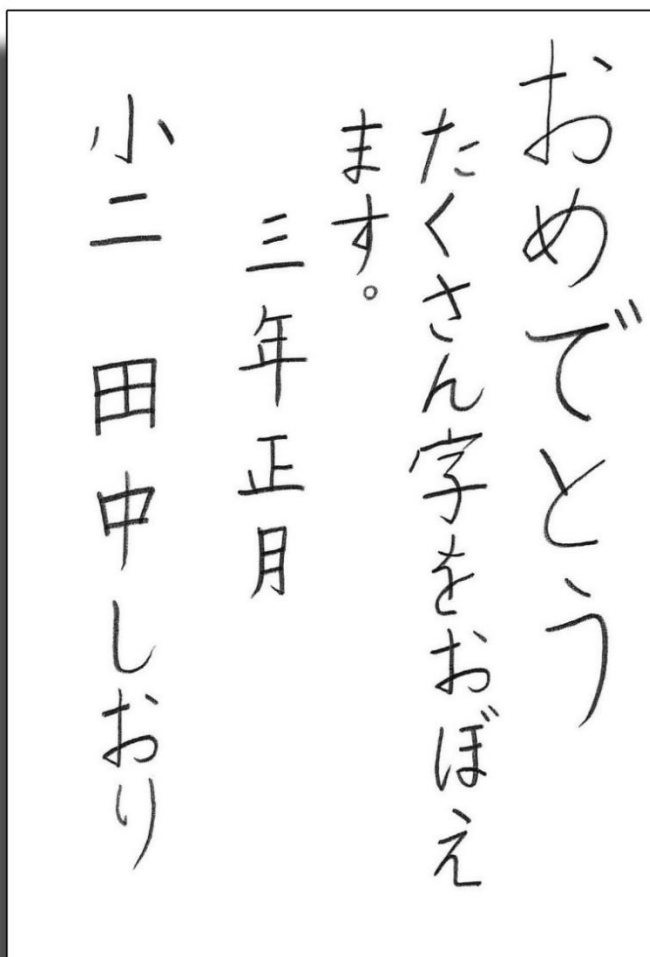 おめでとう
たくさん字をおぼえ
ます。
三年正月
小二 田中しおり